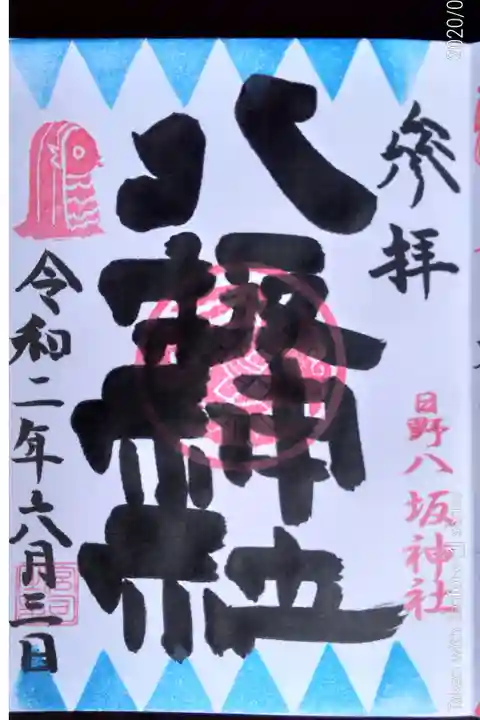 参拝
日野八坂神社
八坂神社
令和二年六月三日
2020/0